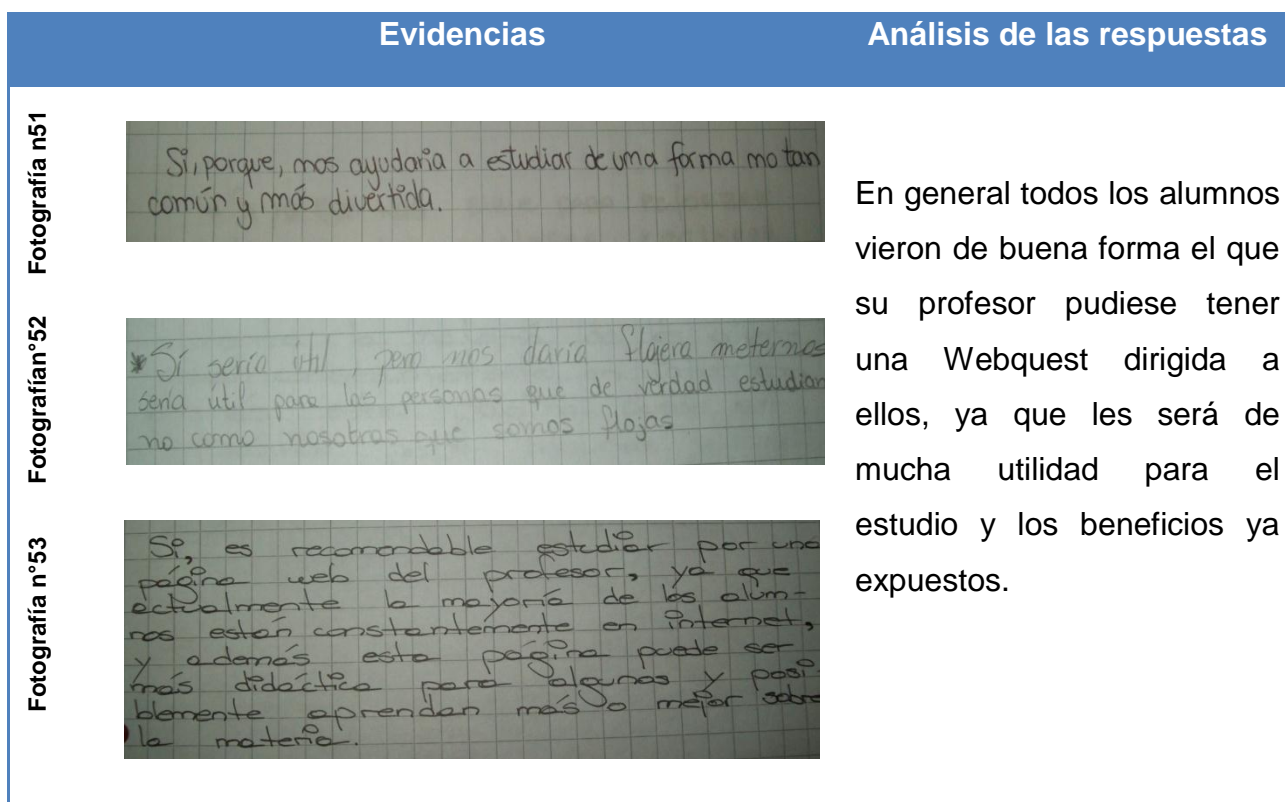 Evidencias
Análisis de las respuestas
Fotografía n51
Si, porque, nos ayudaria a estudiar de una forma no tan
común y más divertida.
Fotografían°52
*Sí sería útil, pero nos daría flojera meternos
sería útil para las personas que de verdad estudian
no como nosotras que somos flojas
Fotografía n°53
Si, es recomendable estudiar por una
página web del profesor, ya que
actualmente la mayoría de los alum-
nos están constantemente en internet,
y además esta página puede ser
más didáctica para algunos y posi-
blemente aprendan más o mejor sobre
la materia.
En general todos los alumnos
vieron de buena forma el que
su profesor pudiese tener
una Webquest dirigida a
ellos, ya que les será de
mucha utilidad para el
estudio y los beneficios ya
expuestos.